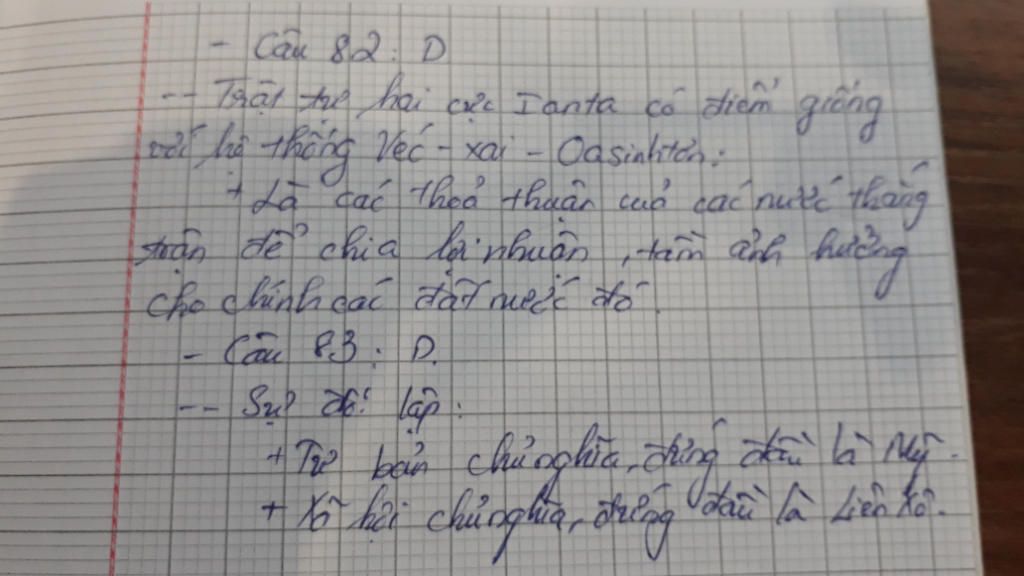 - Câu 82: D
-- Trật tự hai cực Ianta có điểm giống
với hệ thống Véc-xai-Oasinhtơn:
+ Là các thoả thuận của các nước thắng
trận để chia lợi nhuận, tầm ảnh hưởng
cho chính các đất nước đó.
- Câu 83: D.
-- Sự đối lập:
+ Tư bản chủ nghĩa, đứng đầu là Mỹ.
+ Xã hội chủ nghĩa, đứng đầu là Liên Xô.